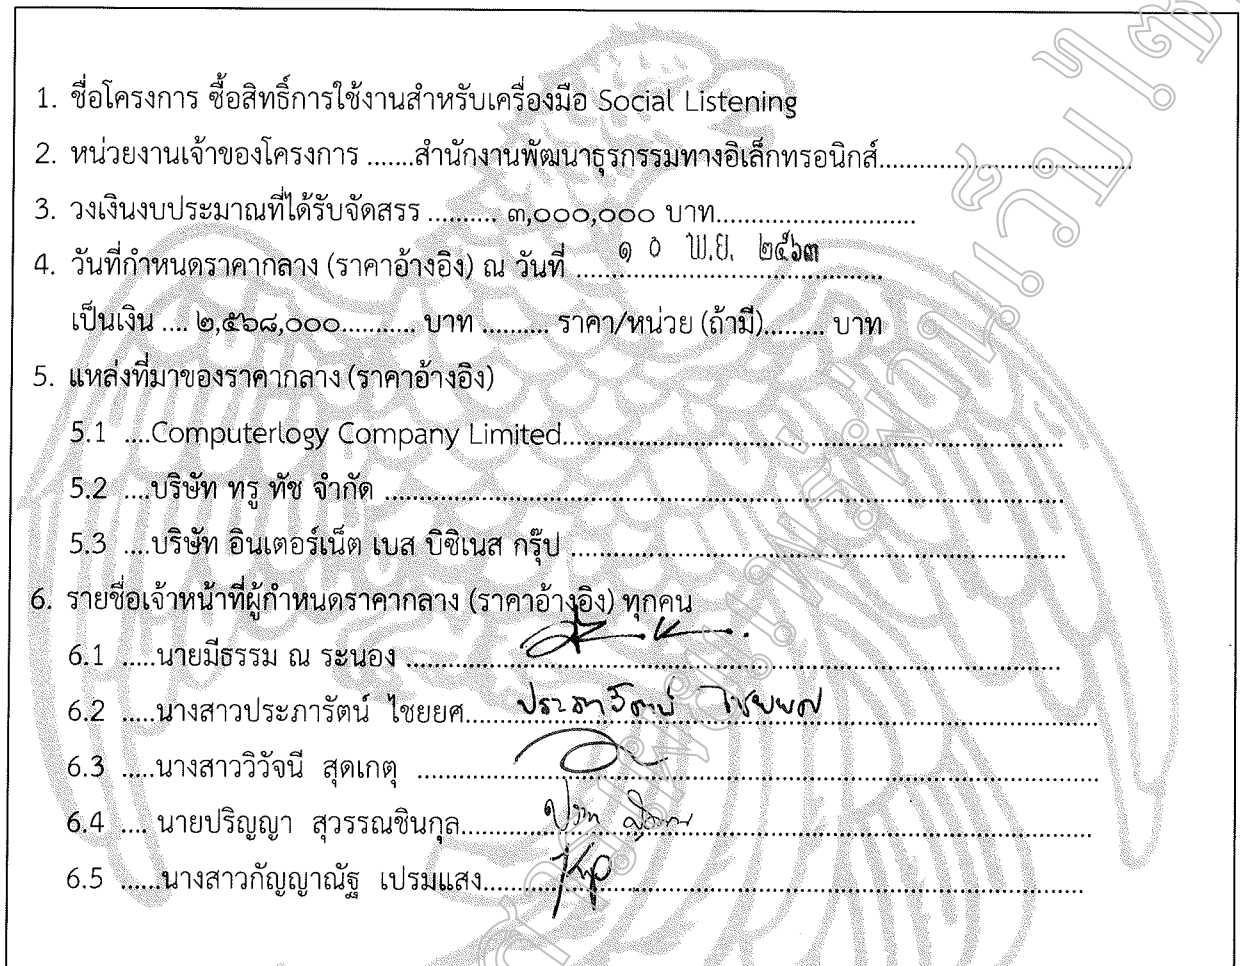 1. ชื่อโครงการ ซื้อสิทธิ์การใช้งานสำหรับเครื่องมือ Social Listening
2. หน่วยงานเจ้าของโครงการ .......สำนักงานพัฒนาธุรกรรมทางอิเล็กทรอนิกส์....................................
3. วงเงินงบประมาณที่ได้รับจัดสรร .......... ๓,๐๐๐,๐๐๐ บาท.............................
4. วันที่กำหนดราคากลาง (ราคาอ้างอิง) ณ วันที่ ๑ ๐ พ.ย. ๒๕๖๓
เป็นเงิน .... ๒,๕๖๘,๐๐๐........... บาท .......... ราคา/หน่วย (ถ้ามี)......... บาท
5. แหล่งที่มาของราคากลาง (ราคาอ้างอิง)
5.1 ....Computerlogy Company Limited..........................................................................
5.2 ....บริษัท ทรู ทัช จำกัด ..........................................................................................
5.3 ....บริษัท อินเตอร์เน็ต เบส บิซิเนส กรุ๊ป ..................................................................
6. รายชื่อเจ้าหน้าที่ผู้กำหนดราคากลาง (ราคาอ้างอิง) ทุกคน
6.1 .....นายมีธรรม ณ ระนอง ..........................................................................................
6.2 .....นางสาวประภารัตน์ ไชยยศ..... ประภารัตน์ ไชยยศ
6.3 .....นางสาววิวัจนี สุดเกตุ ..........................................................................................
6.4 .... นายปริญญา สุวรรณชินกุล..................................................................................
6.5 ......นางสาวกัญญาณัฐ เปรมแสง..............................................................................